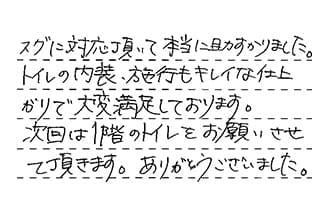 スグに対応頂いて本当に助かりました。
トイレの内装、施行もキレイな仕上
がりで大変満足しております。
次回は1階のトイレをお願いさせ
て頂きます。ありがとうございました。